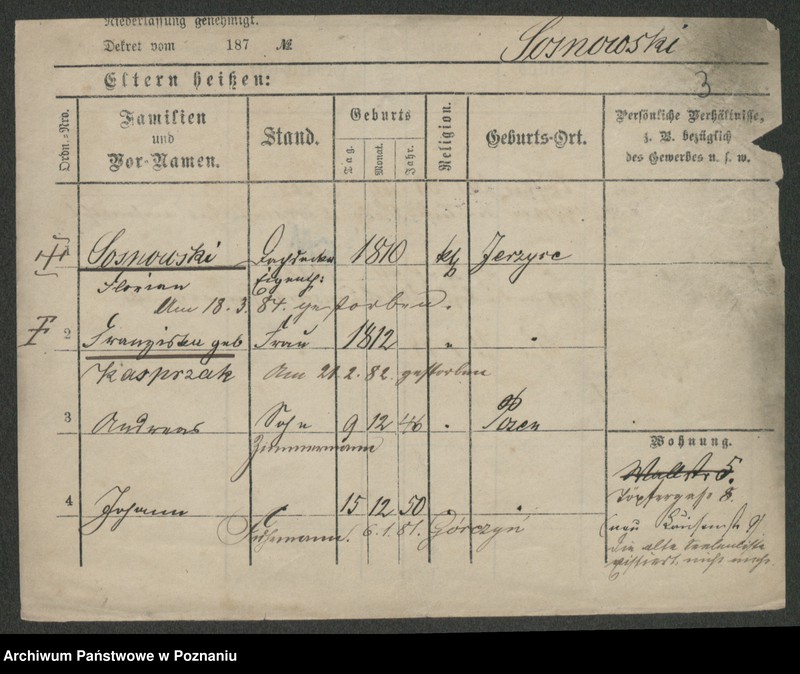 Niederlassung genehmigt.
Dekret vom 187 № Sosnowski
3
Eltern heißen:
Ordn.-Nro. Familien und Vor-Namen. Stand. Geburts Tag. Monat. Jahr. Religion. Geburts-Ort. Persönliche Verhältnisse, z. B. bezüglich des Gewerbes u. s. w.
Sosnowski Dachdecker 1810 kth Jerzyce
Florian Eigenth:
Am 18. 3. 84. gestorben.
2 Franziska geb Frau 1812 " "
Kasprzak Am 21. 2. 82. gestorben
3 Andreas Sohn 9 12 46 " Posen
Zimmermann
Wohnung.
Wallstr. 5.
Töpfergasse 8.
4 Johann 15 12 50 " "
Fuhrmann. 6. 1. 81. Górczyń
neu
die alte Seelenliste
existiert nicht mehr
Archiwum Państwowe w Poznaniu